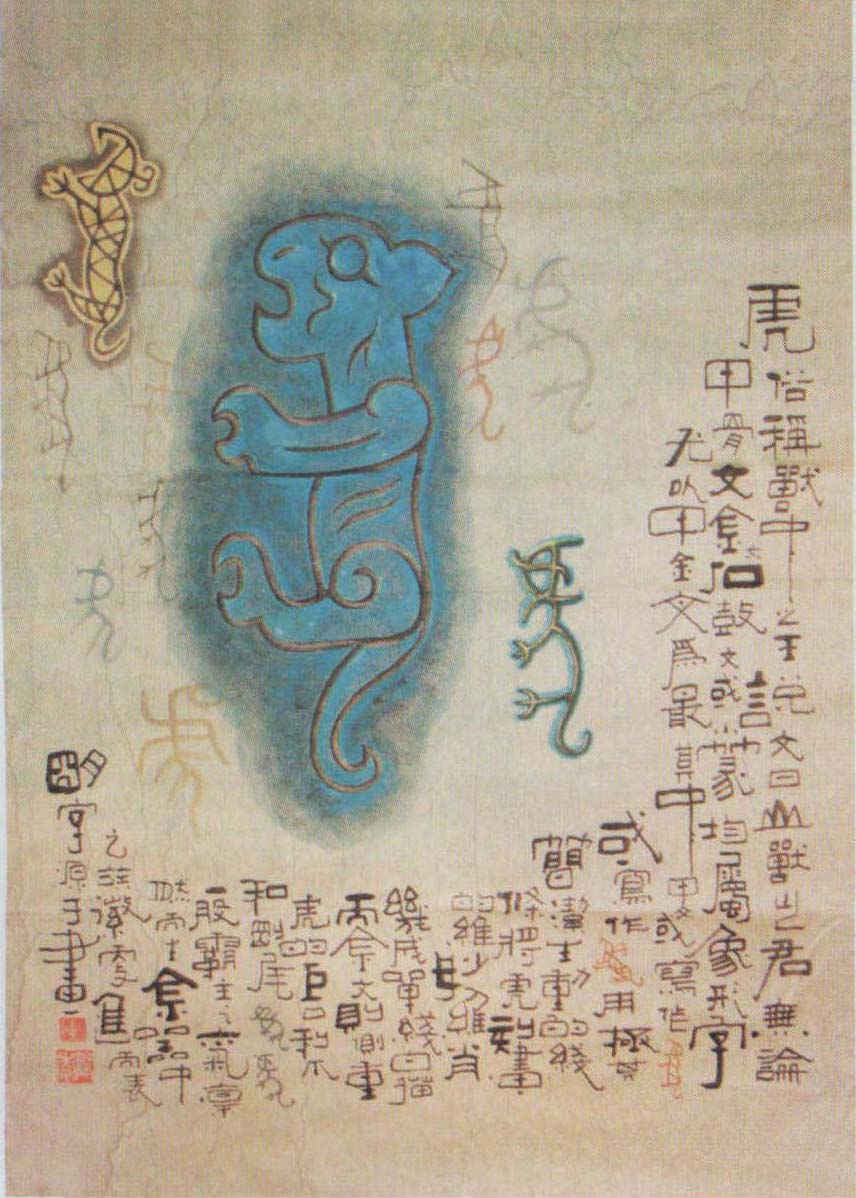 虎俗稱獸中之王說文曰山獸之君無論
甲骨文金文石鼓文或小篆均屬象形字
尤以甲金文為最其中甲文或寫作
或寫作用極其
簡潔生動的綫
條將虎刻畫
的維妙維肖
幾成單綫白描
而金文則側重
虎的巨口利爪
和尾
一股霸主之氣凜
然而生金器中
之族徽
字源畫